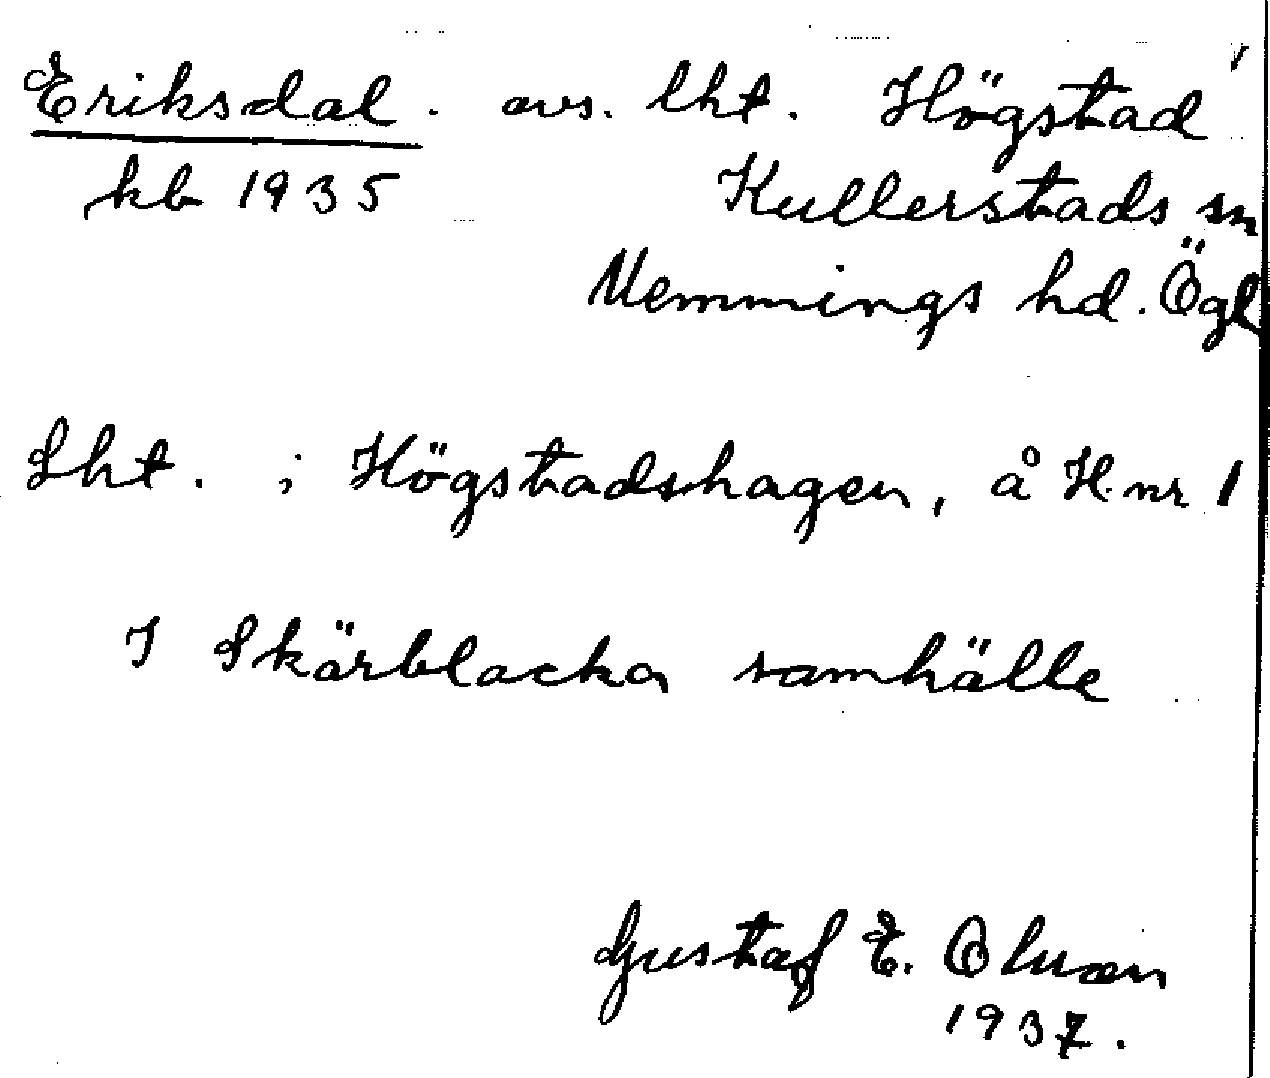 Eriksdal. avs. lht. Högstad
kb 1935 Kullerstads sn
Memmings hd. Ögl
Lht. i Högstadshagen, å H. nr 1
I Skärblacka samhälle
Gustaf E. Olsson
1937.